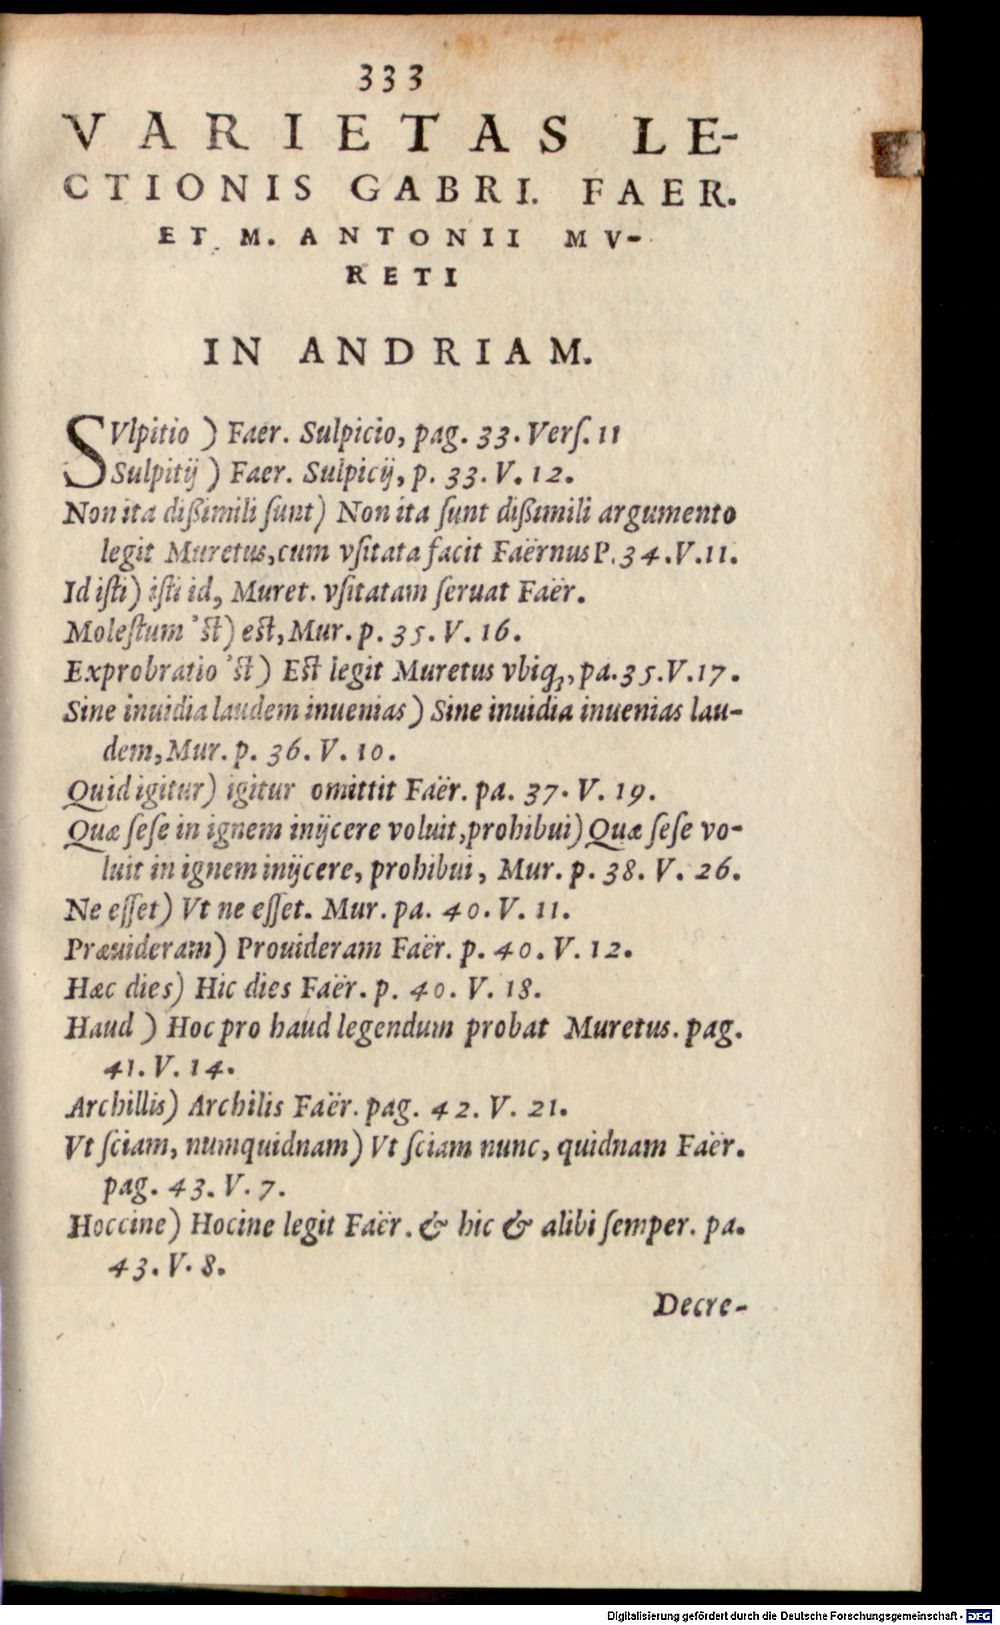 333
VARIETAS LE-
CTIONIS GABRI. FAER.
ET M. ANTONII MV-
RETI
IN ANDRIAM.
SVlpitio ) Faër. Sulpicio, pag. 33. Verſ. 11
Sulpitij ) Faer. Sulpicij, p. 33. V. 12.
Non ita dißimili ſunt) Non ita ſunt dißimili argumento
legit Muretus, cum vſitata facit Faërnus P. 34. V. 11.
Id iſti) iſti id, Muret. vſitatam ſeruat Faër.
Moleſtum 'ſt) eſt, Mur. p. 35. V. 16.
Exprobratio 'ſt) Eſt legit Muretus vbiq;, pa. 35. V. 17.
Sine inuidia laudem inuenias ) Sine inuidia inuenias lau-
dem, Mur. p. 36. V. 10.
Quid igitur) igitur omittit Faër. pa. 37. V. 19.
Quæ ſeſe in ignem inijcere voluit, prohibui) Quæ ſeſe vo-
luit in ignem inijcere, prohibui, Mur. p. 38. V. 26.
Ne eſſet) Vt ne eſſet. Mur. pa. 40. V. 11.
Præuideram) Prouideram Faër. p. 40. V. 12.
Hæc dies) Hic dies Faër. p. 40. V. 18.
Haud ) Hoc pro haud legendum probat Muretus. pag.
41. V. 14.
Archillis) Archilis Faër. pag. 42. V. 21.
Vt ſciam, numquidnam) Vt ſciam nunc, quidnam Faër.
pag. 43. V. 7.
Hoccine) Hocine legit Faër. & hic & alibi ſemper. pa.
43. V. 8.
Decre-
Digitalisierung gefördert durch die Deutsche Forschungsgemeinschaft - DFG